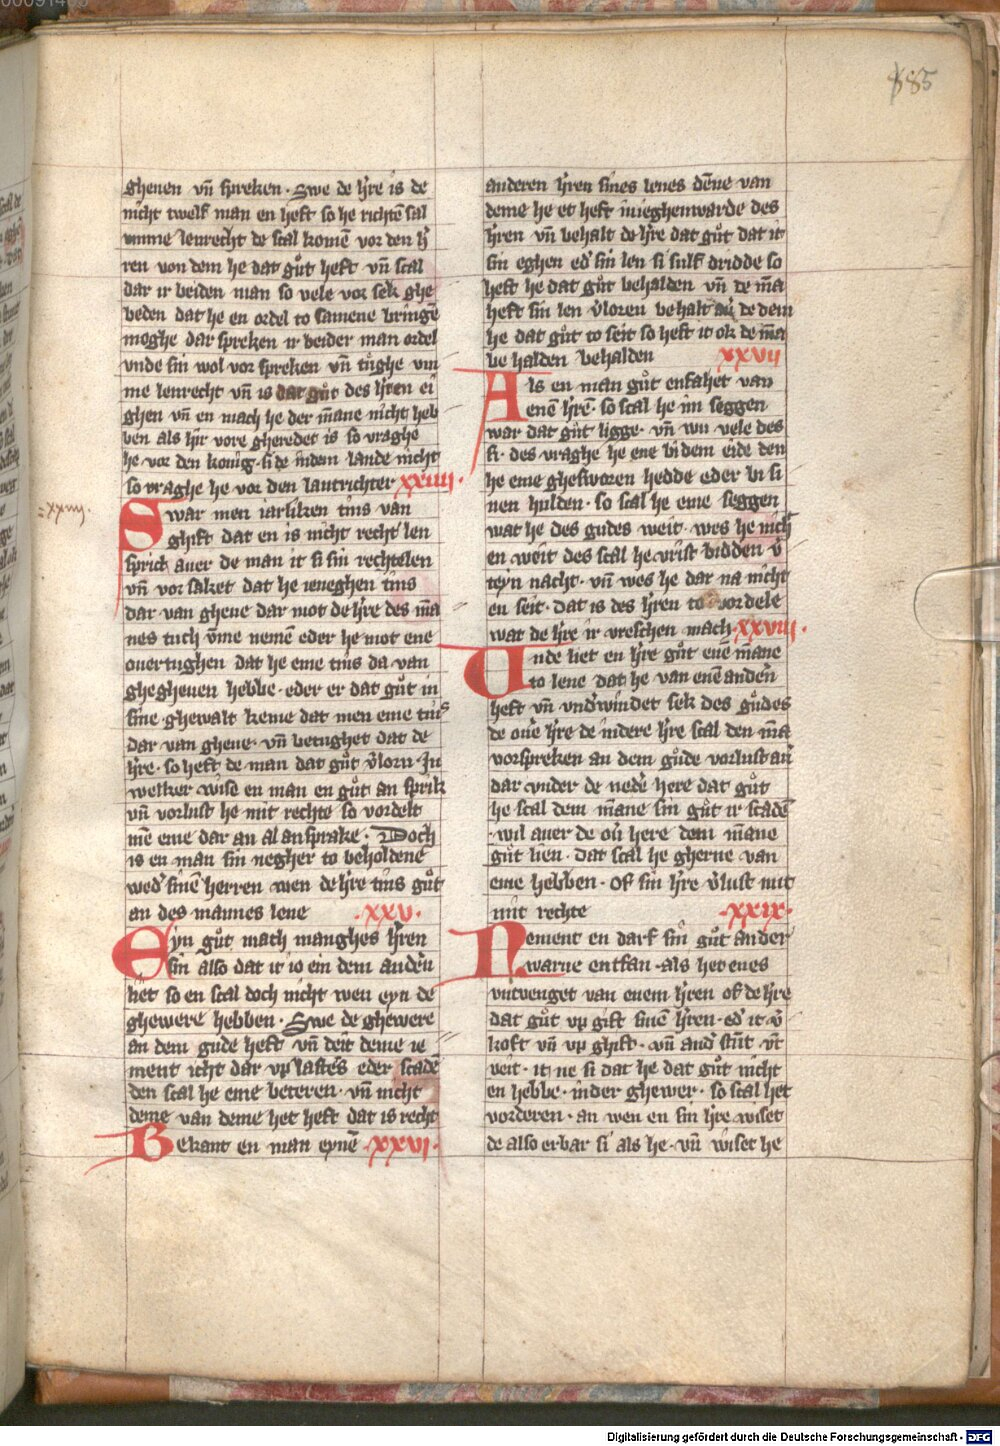 185
gheuen vn̄ spreken · Swe de h̄re is de
nicht twelf man en heft so he richtē sal
vmme lenrecht de scal komē vor den h̄
ren von dem he dat gůt heft vn̄ scal
dar ir beiden man so vele vor sek ghe
beden dat he en ordel to samene bringē
moghe dar spreken ir beider man ordel
vnde sin wol vor spreken vn̄ tůghe vm
me lenrecht vn̄ is dat gůt des h̄ren ei
ghen vn̄ en mach he der m̄ane nicht heb
ben als hir vore gheredet is so vraghe
he vor den konīg · si de indem lande nicht
so vraghe he vor den lantrichter xxiiii ·
Swar men iarliken tins van
ghift dat en is nicht recht len
sprich auer de man it si sin rechtelen
vn̄ vor saket dat he ieneghen tins
dar van gheue dar mot de h̄re des m̄a
nes tuch v̄me nemē eder he mot ene
ouertughen dat he eme tins da van
ghegheuen hebbe · eder er dat gůt in
sine ghewalt keme dat men eme tins
dar van gheue · vn̄ betughet dat de
h̄re · so heft de man dat gůt v̄lorn · In
welker wise en man en gůt an sprik
vn̄ vorlust he mit rechte so vordelt
mē eme dar an al ansprake · Doch
is en man sin negher to beholdene
wed' sinē herren wen de h̄re tins gůt
an des mannes lene · xxv ·
Eyn gůt mach manghes h̄ren
sin also dat it io ein dem andē'n
liet so en scal doch nicht wen eyn de
ghewere hebben · Swe de ghewere
an dem gude heft vn̄ deit deme ie
ment icht dar vp lastes eder scadē
den scal he eme beteren · vn̄ nicht
deme van deme het heft dat is recht
Bekant en man eynē · xxvi ·
anderen h̄ren sines lenes dēne van
deme he et heft in ieghenwarde des
h̄ren vn̄ behalt de h̄re dat gůt dat it
sin eghen ed' sin len si sulf dridde so
heft he dat gůt behalden vn̄ de m̄a
heft sin len v̄loren behalt au̅ de dem
he dat gůt to seit so heft it ok de m̄a
be halden behalden xxvii
Als en man gůt enfahet van
enē h̄re · so scal he im seggen
war dat gůt ligge · vn̄ wu vele des
si · des vraghe he ene bi dem eide den
he eme ghesworen hedde eder bi si
nen hulden · so scal he eme seggen
wat he des gudes weit · wes he nich
en weit des scal he vrist bidden v̄
teyn nacht · vn̄ wes he dar na nicht
en seit · dat is des h̄ren to vordele
wat de h̄re ir vreschen mach · xxviii ·
Vnde liet en h̄re gůt enē mane
to lene dat he van enē anderē
heft vn̄ vnd'windet sek des gůdes
de oue̅ h̄re de nidere h̄re scal den m̄a
vorspreken an dem gůde vorlust au̅
dar vnder de nede̅ here dat gůt
he scal dem m̄ane sin gůt ir scadē
· wil auer de ou̅ here dem m̄ane
gůt lien · dat scal he gherne van
eme hebben · Of sin h̄re v̄lust mit
mit rechte · xxix ·
Nement en darf sin gůt ander
warue entfan · als het enes
vntvenget van enem h̄ren of de h̄re
dat gůt vp gift sinē h̄ren · ed' it v̄
koft vn̄ vp ghift · vn̄ and' stūt vt
veit · it ne si dat he dat gůt nicht
en hebbe · inder ghewer · so scal het
vorderen · an wen en sin h̄re wiset
de also erbar si als he · vn̄ wiset he
=xxiiij.
Digitalisierung gefördert durch die Deutsche Forschungsgemeinschaft - DFG